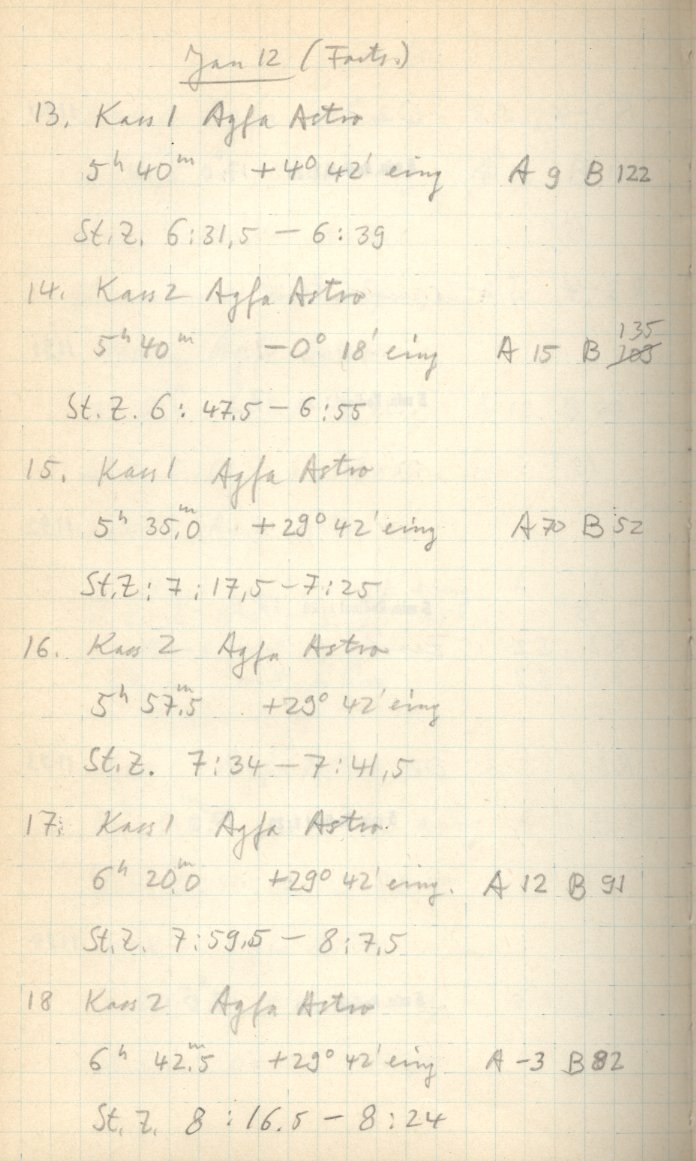 Jan 12 (Forts.)
13. Kass 1 Agfa Astro
5h 40m +4° 42' eing A 9 B 122
St.Z. 6:31,5 – 6:39
14. Kass 2 Agfa Astro
5h 40m –0° 18' eing A 15 B 135
St.Z. 6:47.5 – 6:55
15. Kass 1 Agfa Astro
5h 35,m0 +29° 42' eing A 70 B 52
St.Z: 7:17,5 – 7:25
16. Kass 2 Agfa Astro
5h 57.m5 +29° 42' eing
St.Z. 7:34 – 7:41,5
17. Kass 1 Agfa Astro
6h 20.m0 +29° 42' eing. A 12 B 91
St.Z. 7:59,5 – 8:7,5
18 Kass 2 Agfa Astro
6h 42.m5 +29° 42' eing A –3 B 82
St.Z. 8:16.5 – 8:24